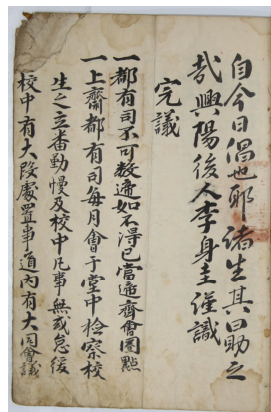 自今日倡也耶諸生其曰助之
哉興陽後人李身圭謹識
完議
一都有司不可數遞如不得已當遞齊會圈點
一上齋都有司每月會于堂中檢察校
生之立番勤慢及校中凡事無或怠緩
校中有大段處置事道內有大同會議